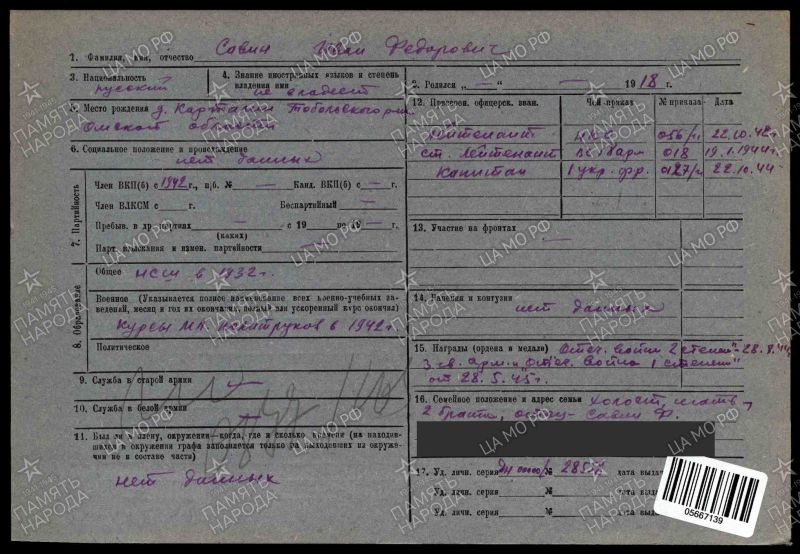 1. Фамилия, имя, отчество Савин Иван Федорович
3. Национальность русский
4. Знание иностранных языков и степень владения ими не владеет
2. Родился „ — “ — 1918 г.
5. Место рождения д. Тобольского р-на
Омской области
6. Социальное положение и происхождение
нет данных
7. Партийность
Член ВКП(б) с 1942 г., п/б. № — Канд. ВКП(б) с — г.
Член ВЛКСМ с — г. Беспартийный —
Пребыв. в др. партиях — с 19 — по 19 — г.
(каких)
Парт. взыскания и измен. партийности —
8. Образование
Общее НСШ в 1932 г.
Военное (Указывается полное наименование всех военно-учебных за-
ведений, месяц и год их окончания, полный или ускоренный курс окончил)
Курсы мл. политруков в 1942 г.
Политическое
9. Служба в старой армии —
10. Служба в белой армии —
11. Был ли в плену, окружении—когда, где и сколько времени (на находив-
шихся в окружении графа заполняется только на выходивших из окруже-
ния не в составе части)
нет данных
12. Присвоен. офицерск. зван. Чей приказ № приказа Дата
Лейтенант 056/н 22.10.42 г.
ст. лейтенант 018 19.1.1944 г.
Капитан 1 укр. фр. 0127/н 22.10.44
13. Участие на фронтах
—
14. Ранения и контузии
нет данных
15. Награды (ордена и медали) Отеч. войны 2 степени 28.8.44
3 гв. арм. и Отеч. война 1 степени
от 28.5.45 г.
16. Семейное положение и адрес семьи холост, мать,
2 брата, отец - Савин Ф.
17. Уд. личн. серия № дата выда
Уд. личн. серия № дата выда
Уд. личн. серия № дата выда
05667139
ПАМЯТЬ НАРОДА
1941-1945
ЦА МО РФ